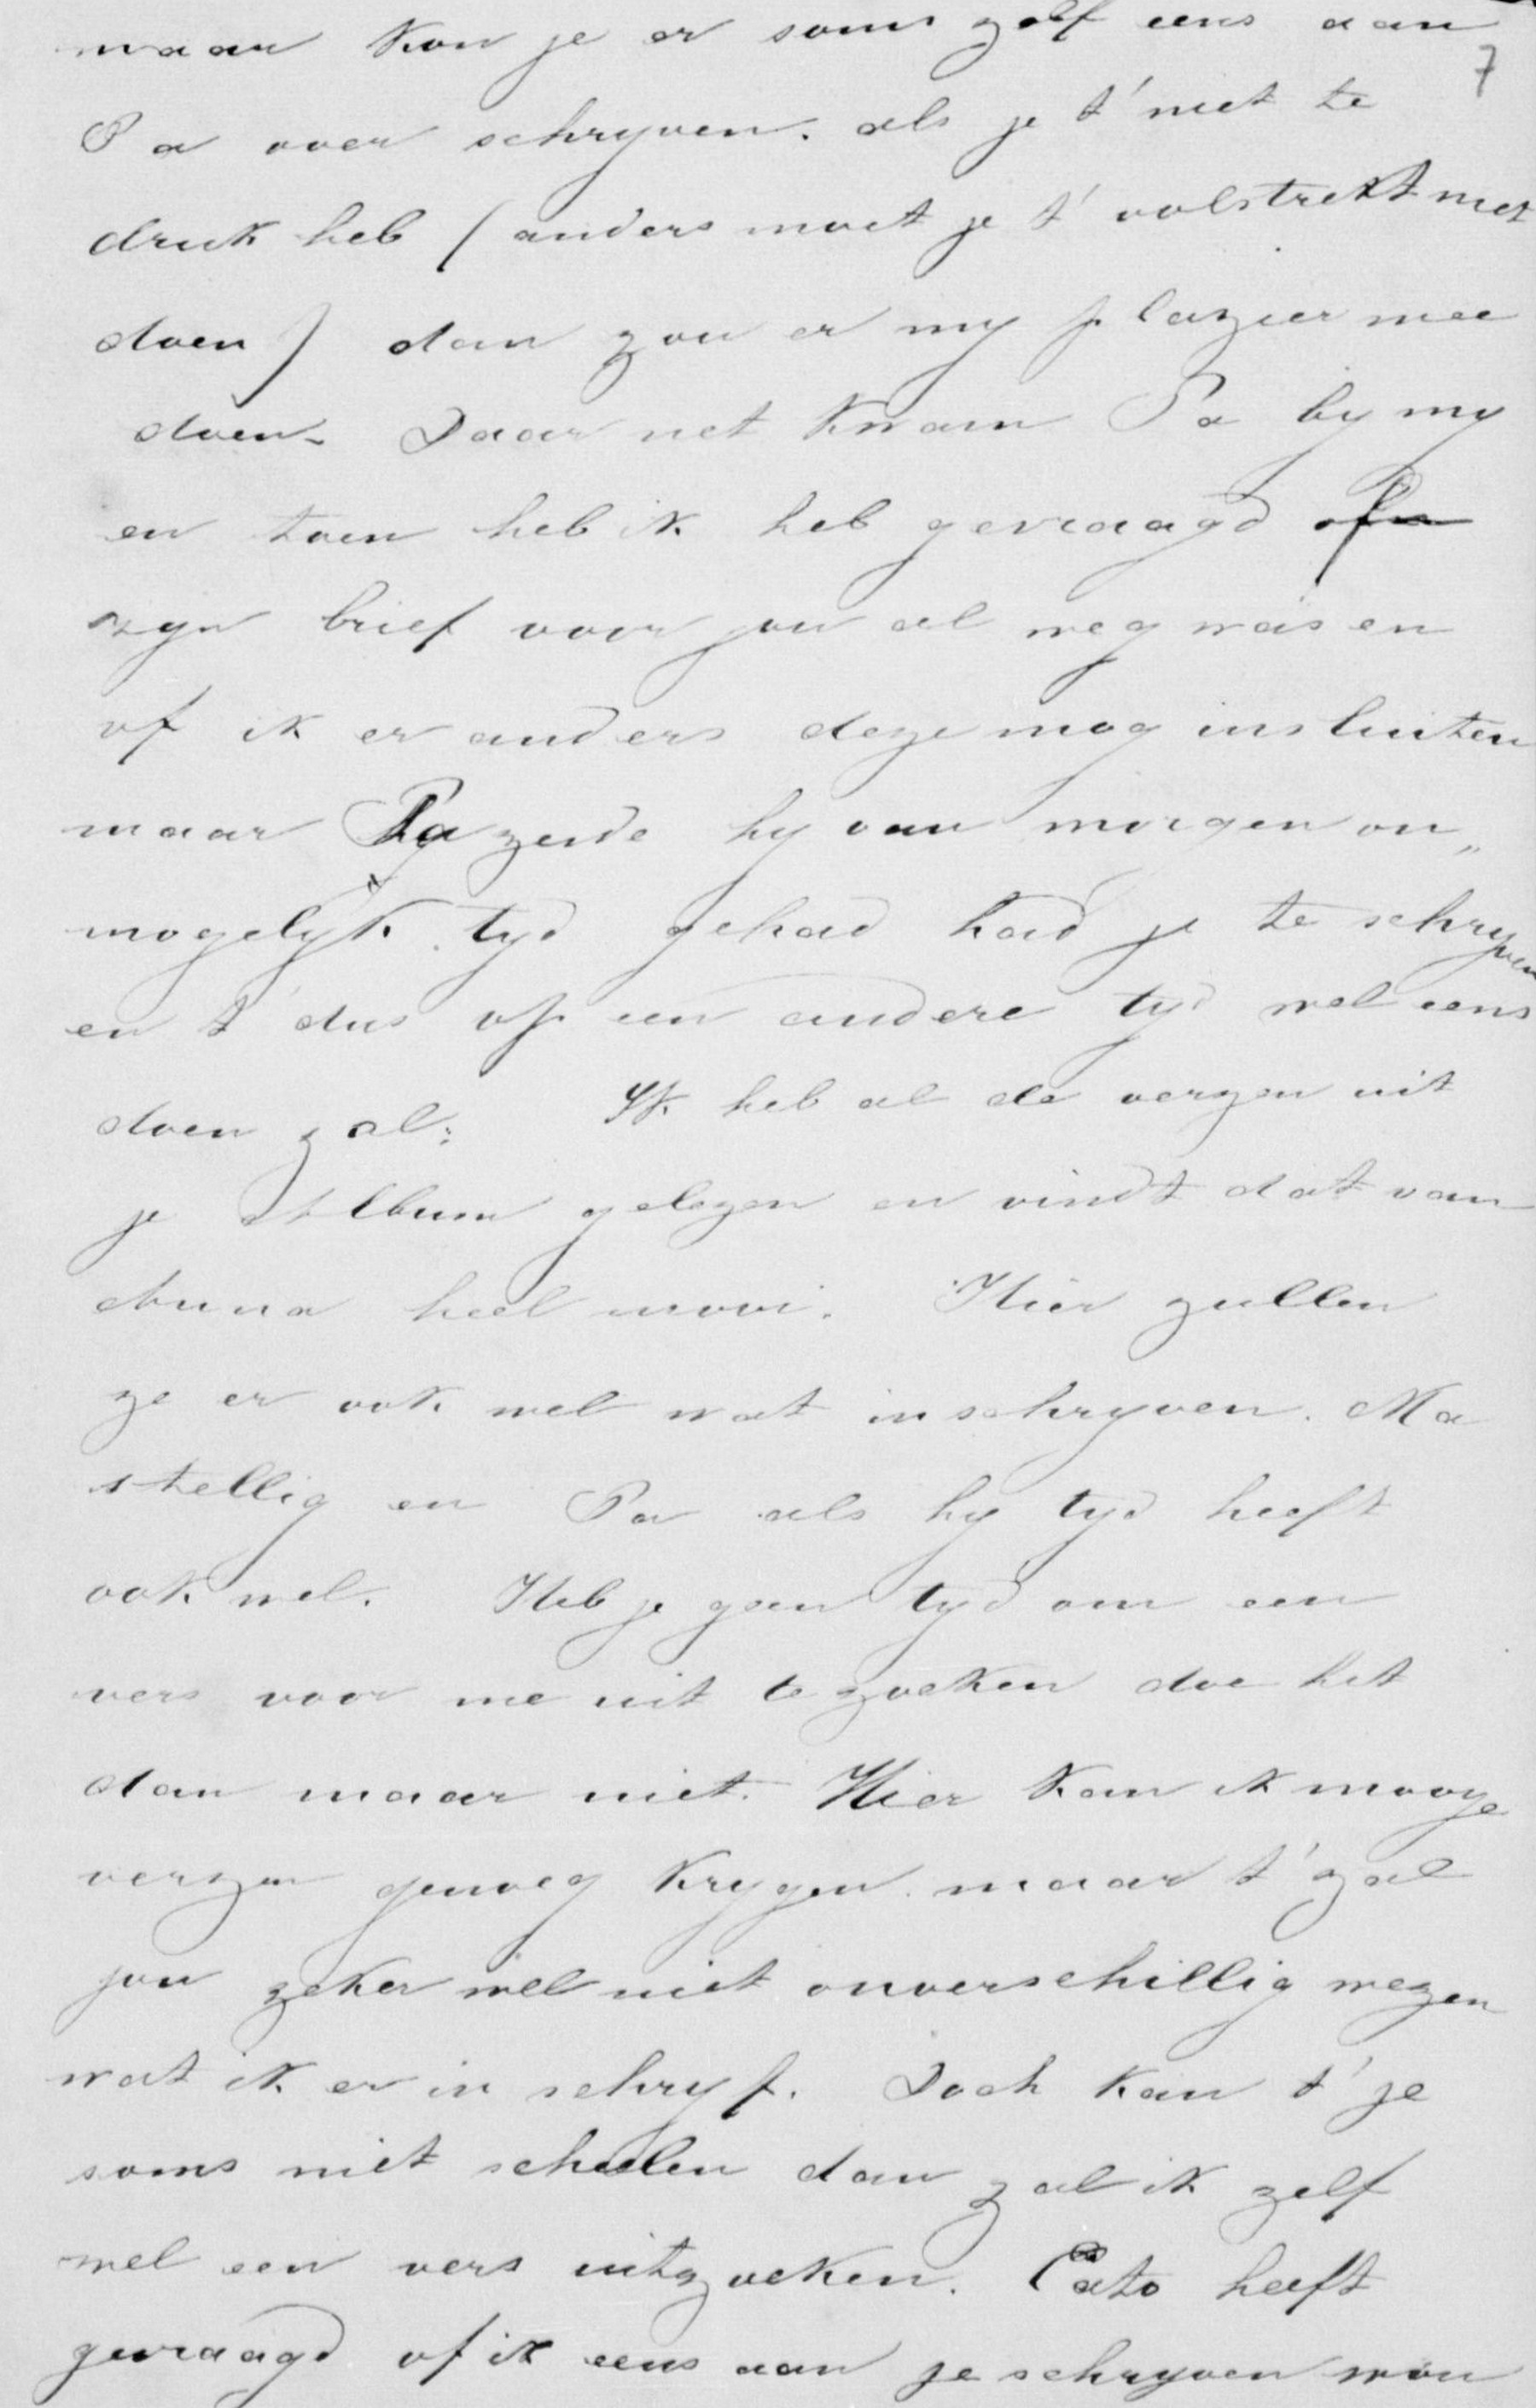 maar kon je er soms zelf eens aan
7
Pa over schryven. als je t' niet te
druk heb (anders moet je t' volstrekt niet
doen) dan zou er my plazier mee
doen. Daar net kwam Pa by my
en toen heb ik heb gevraagd of
zyn brief voor jou al weg was en
of ik er anders deze mog insluiten
maar Pa zeide hy van morgen on„
mogelyk tyd gehad had je te schryven
en t' dus op een andere tyd wel eens
doen zal. Ik heb al de verzen uit
je Album gelezen en vindt dat van
Anna heel mooi. Hier zullen
ze er ook wel wat in schryven. Ma
stellig en Pa als hy tyd heeft
ook wel. Heb je geen tyd om een
vers voor me uit te zoeken doe het
dan maar niet. Hier kan ik mooye
verzen genoeg krygen. maar t' zal
jou zeker wel niet onverschillig wezen
wat ik er in schryf. Doch kan t' je
soms niet schelen dan zal ik zelf
wel een vers uitzoeken. Cato heeft
gevraagd of ik eens aan je schryven wou